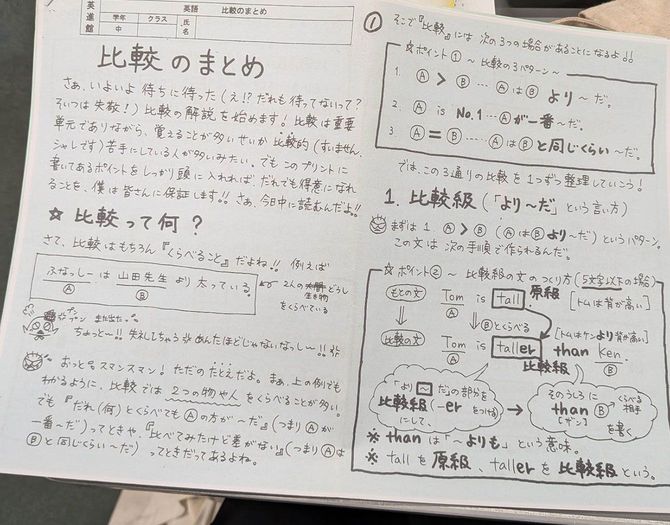 英進館
英語 比較のまとめ
学年 クラス 氏名
中
比較のまとめ
さぁ、いよいよ 待ちに待った(え!?だれも待ってないって?
そいつは失敬!)比較の解説を始めます!比較は重要
単元でありながら、覚えることが多いせいか 比較的(すいません、
シャレです)苦手にしている人が多いみたい。でもこのプリントに
書いてあるポイントをしっかり頭に入れれば、だれでも得意になれ
ることを、僕は皆さんに保証します!!さぁ、今日中に読むんだよ!!
☆比較って何?
さて、比較はもちろん『くらべること』だよね!! 例えば
ふなっしーは 山田先生 より 太っている。
Ⓐ Ⓑ
2人の人間どうし
生き物
をくらべている
プンプン また出た。
ちょっと〜!!失礼しちゃう あんたほどじゃないなっし〜!!
おっと。スマンスマン!ただのたとえだよ。まぁ、上の例でも
わかるように、比較では 2つの物や人 をくらべることが多い。
でも『だれ(何)とくらべてもⒶの方が〜だ』(つまりⒶが
一番〜だ)ってときや、『比べてみたけど差がない』(つまりⒶは
Ⓑと同じくらい〜だ)ってときだってあるよね。
① そこで『比較』には 次の3つの場合があることになるよ!!
☆ポイント① 〜 比較の3パターン〜
1. Ⓐ > Ⓑ … ⒶはⒷより〜だ。
2. Ⓐ is No.1 … Ⓐが一番〜だ。
3. Ⓐ = Ⓑ … ⒶはⒷと同じくらい〜だ。
では、この3通りの比較を 1つずつ整理していこう!
1. 比較級(「より〜だ」という言い方)
まずは 1. Ⓐ > Ⓑ (ⒶはⒷより〜だ)というパターン。
この文は 次の手順で作られるんだ。
☆ポイント② 〜 比較級の文のつくり方(5文字以下の場合)
もとの文 Tom is tall 原級 [トムは背が高い]
Ⓐ
Ⓑとくらべる
比較の文 Tom is taller than Ken. [トムはケンより背が高い]
Ⓐ 比較級 Ⓑ
「より〜だ」の部分を
比較級(-erをつける)
にして、
そのうしろに
than Ⓑ くらべる相手
[ザン]
を書く
※ thanは「〜よりも」という意味。
※ tallを原級、tallerを比較級という。